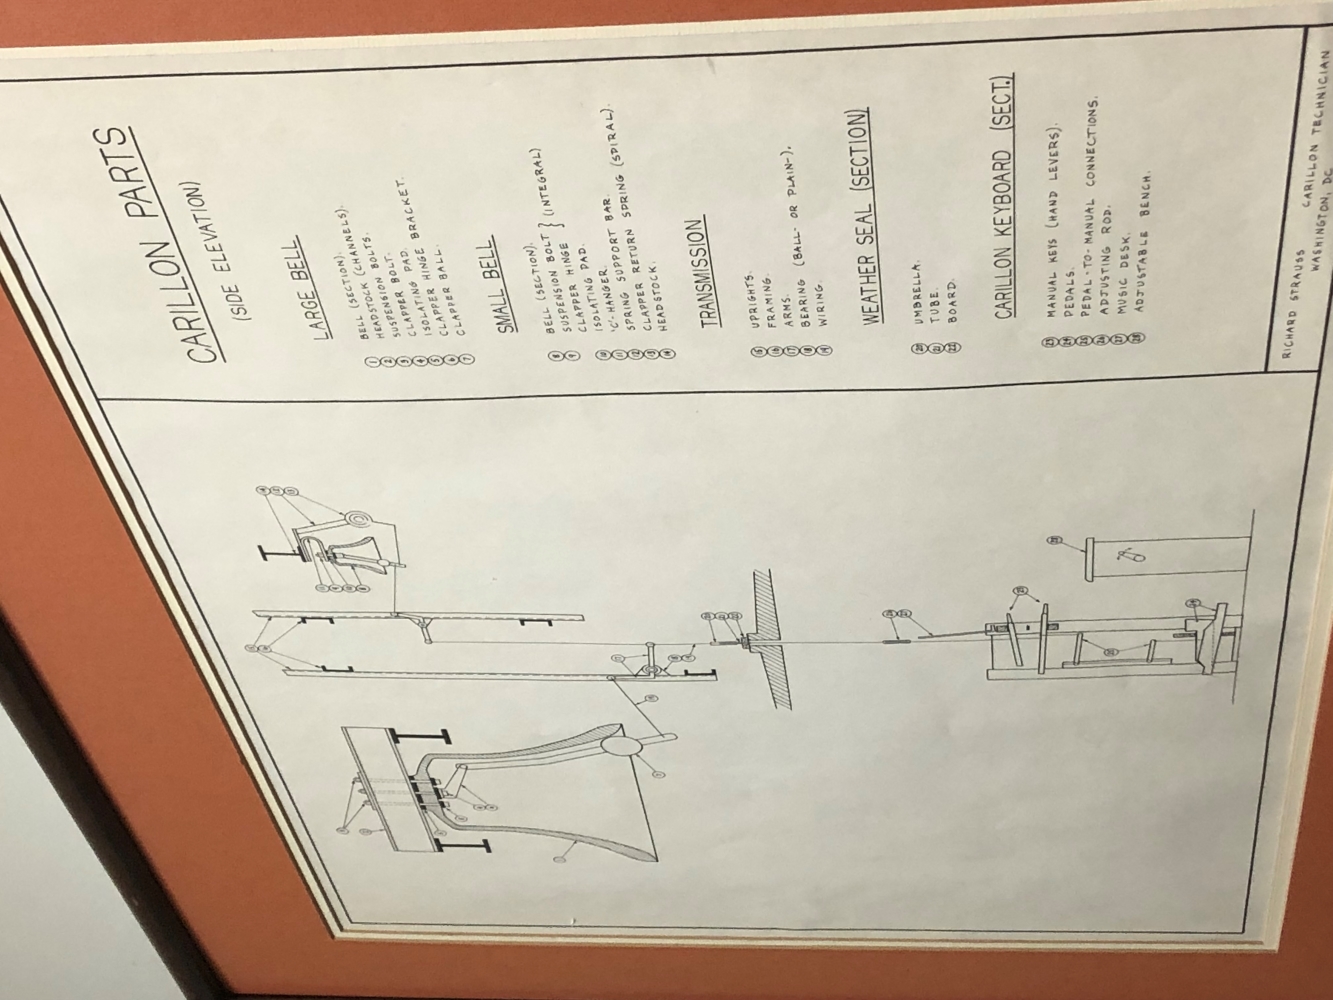 CARILLON PARTS
(SIDE ELEVATION)
LARGE BELL
1 BELL (SECTION).
2 HEADSTOCK (CHANNELS).
3 SUSPENSION BOLTS.
4 CLAPPER BOLT.
5 ISOLATING PAD.
6 CLAPPER HINGE BRACKET.
7 CLAPPER BALL.
SMALL BELL
8 BELL (SECTION).
9 SUSPENSION BOLT } (INTEGRAL)
CLAPPER HINGE
10 ISOLATING PAD.
11 'C'-HANGER.
12 SPRING SUPPORT BAR.
13 CLAPPER RETURN SPRING (SPIRAL).
14 HEADSTOCK.
TRANSMISSION
15 UPRIGHTS.
16 FRAMING.
17 ARMS.
18 BEARING (BALL- OR PLAIN-).
19 WIRING.
WEATHER SEAL (SECTION)
20 UMBRELLA.
21 TUBE.
22 BOARD.
CARILLON KEYBOARD (SECT.)
23 MANUAL KEYS (HAND LEVERS).
24 PEDALS.
25 PEDAL-TO-MANUAL CONNECTIONS.
26 ADJUSTING ROD.
27 MUSIC DESK.
28 ADJUSTABLE BENCH.
RICHARD STRAUSS CARILLON TECHNICIAN
WASHINGTON, DC